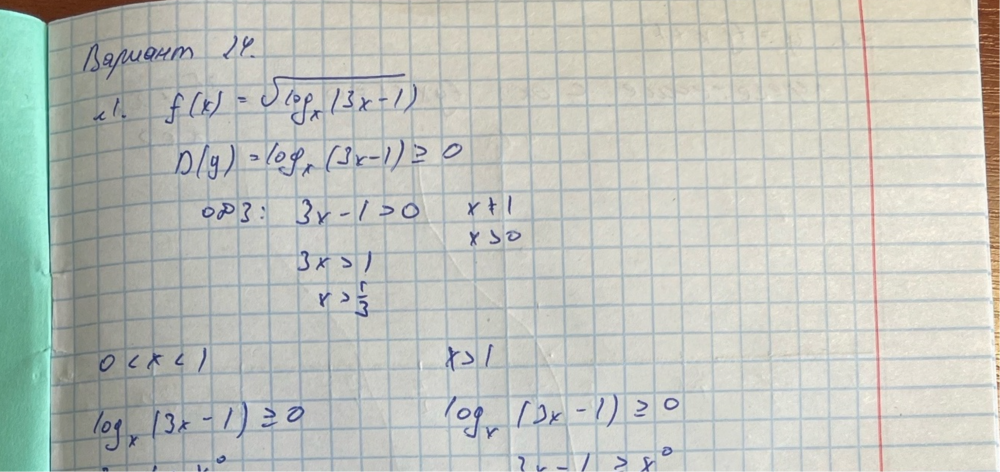 Вариант 24.
№1. f(x) = √log_x (3x-1)
D(y) = log_x (3x-1) ≥ 0
ОДЗ: 3x-1>0 x≠1
x>0
3x>1
x>1/3
0<x<1 x>1
log_x (3x-1) ≥ 0 log_x (3x-1) ≥ 0
3x-1 ≥ x^0